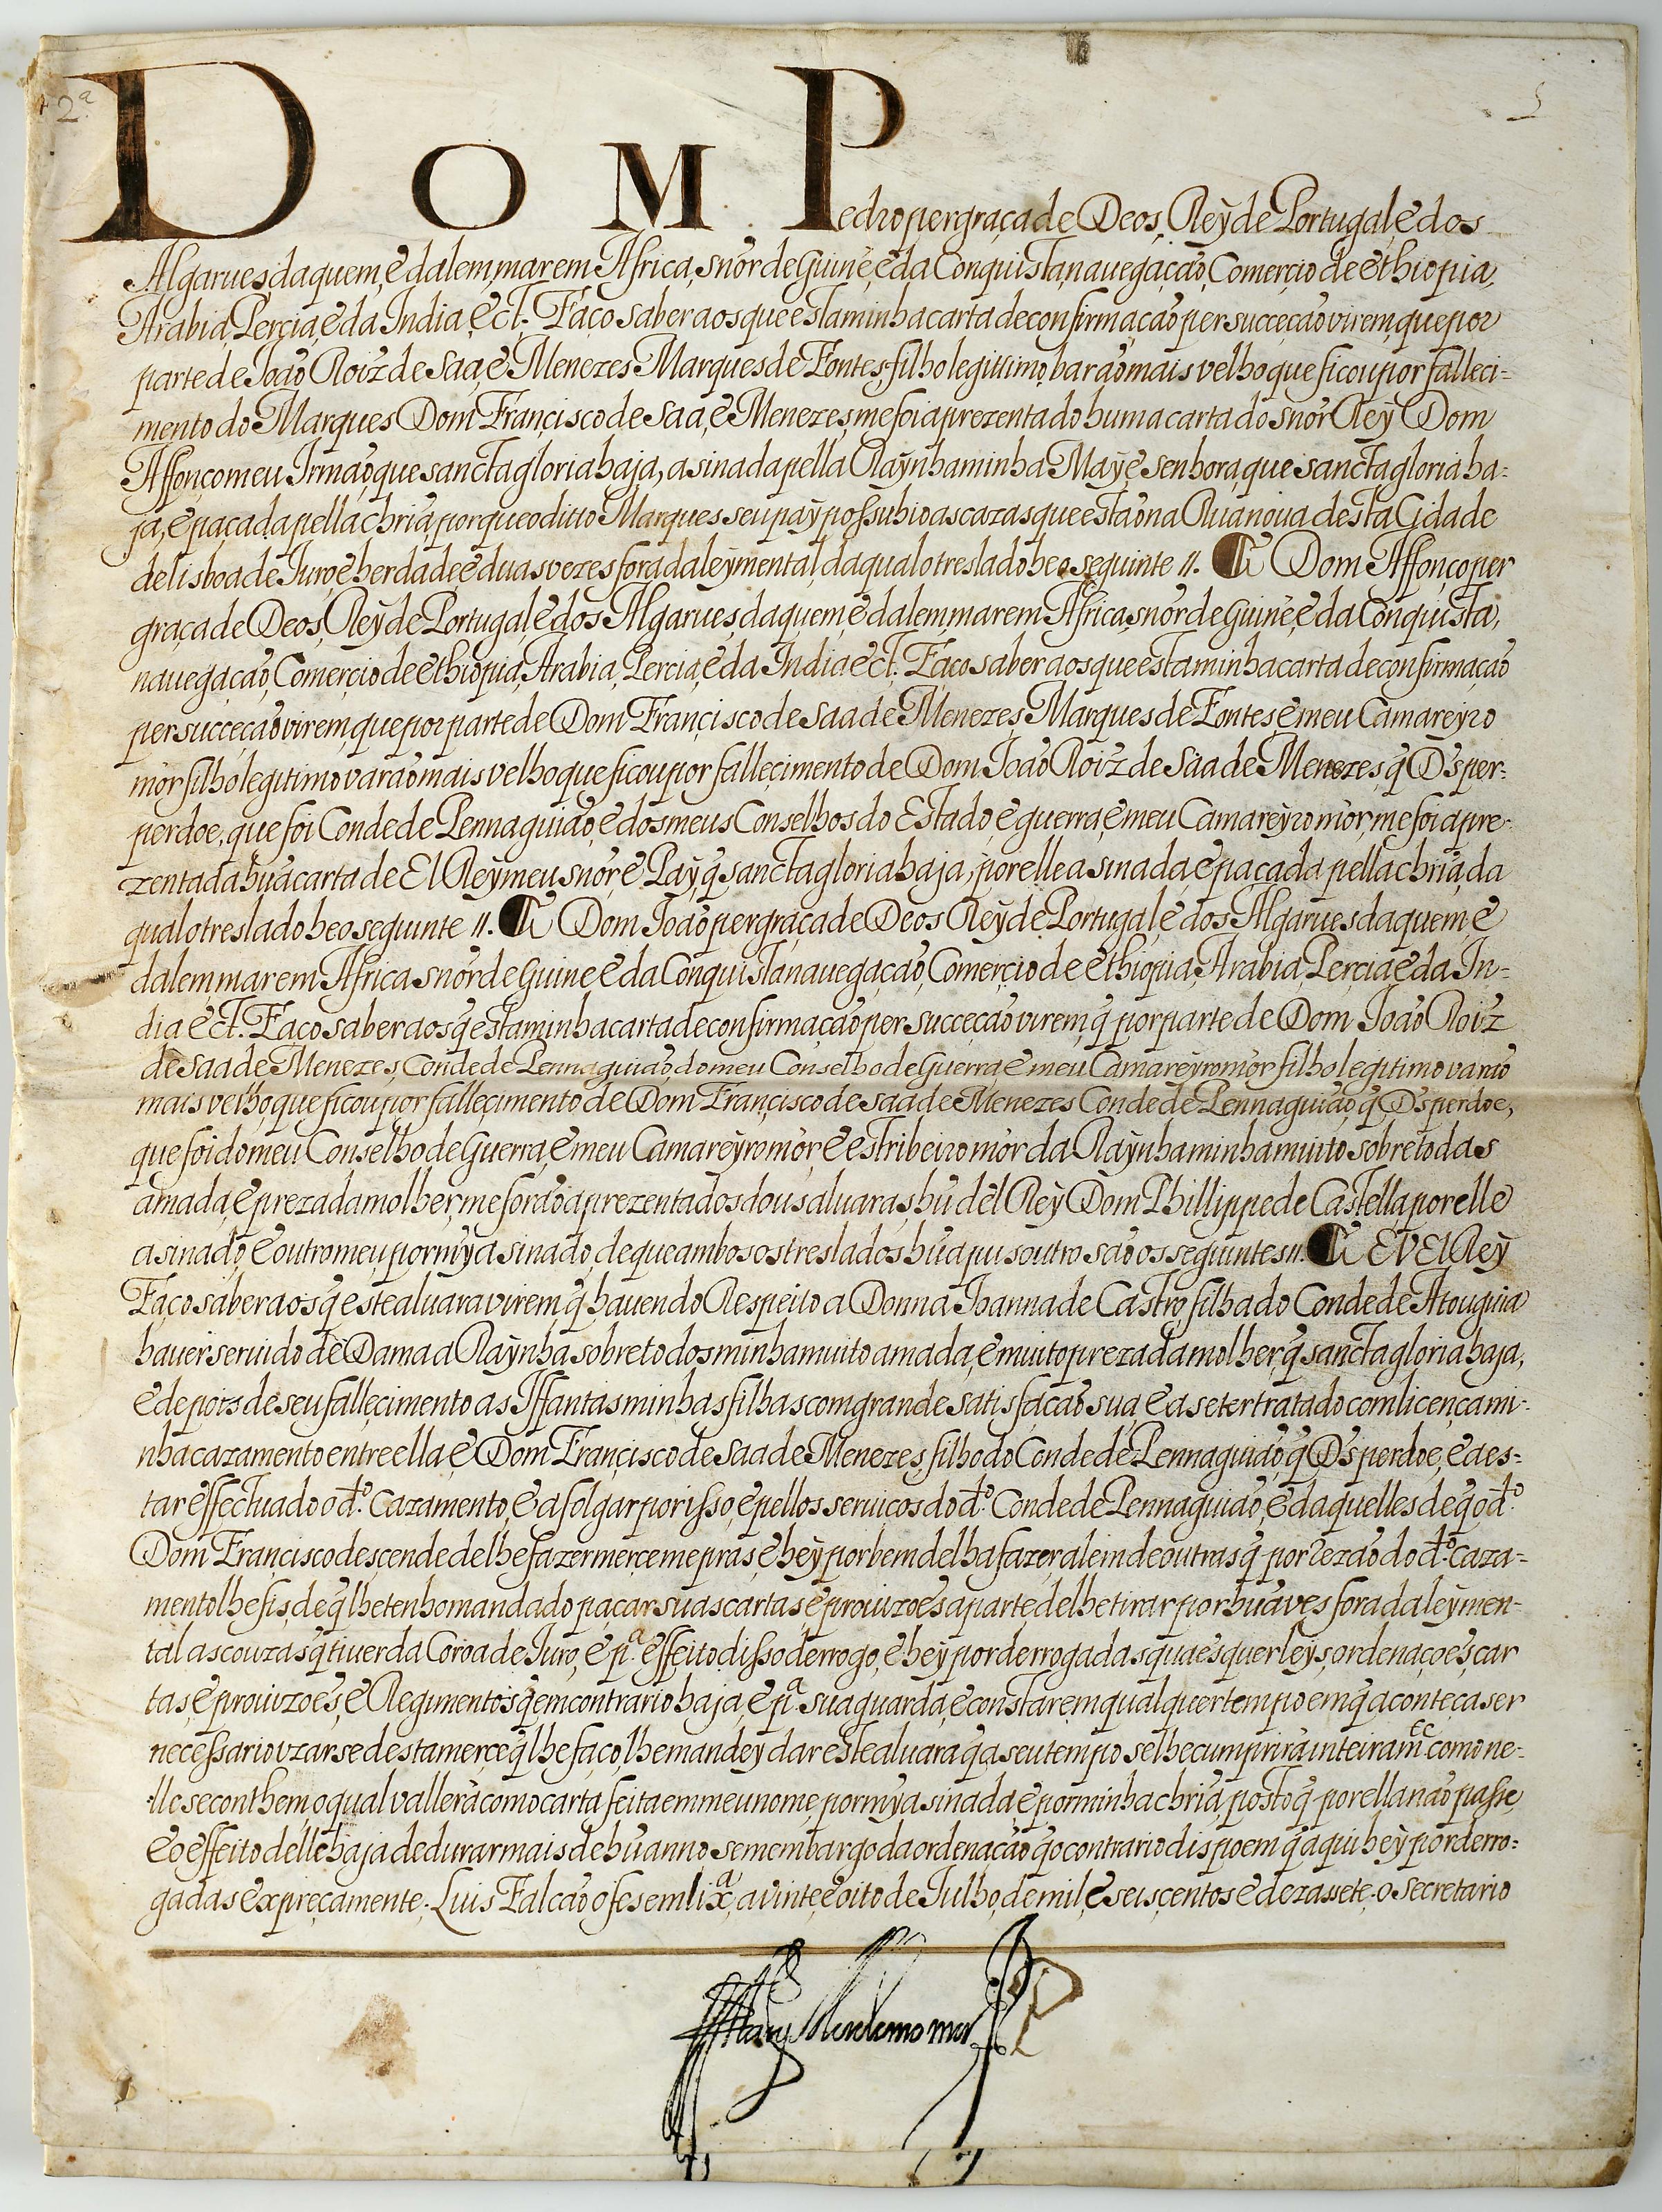 2ª
5
DOM Pedro per graça de Deos, Rey de Portugal, e dos
Algarues, daquem, e dalem, mar em Africa, snõr de Guine, e da Conquista, nauegação, Comerçio de ethiopia,
Arabia, Perçia, e da India, ect. Faço saber aos que esta minha carta de confirmação per succeção virem, que por
parte de João Roiz de saa, e Menezes Marques de Fontes, filho legitimo, barão mais velho que ficou por falleci-
mento do Marques Dom Françisco de saa, e Menezes, me foi aprezentado huma carta do snõr Rey Dom
Affonço meu Irmão, que sancta gloria haja, asinada pella Raynha minha May, e senhora, que sancta gloria ha-
ja, e paçada pella chriã, porque o ditto Marques seu pay possuhio as cazas que estão na Rua noua desta Cidade
de lisboa de Juro, e herdade e duas vezes fora da ley mental, da qual o treslado he o seguinte //. Dom Affonço per
graça de Deos, Rey de Portugal, e dos Algarues, daquem, e dalem, mar em Africa, snõr de Guine, e da Conquista,
nauegação, Comerçio de ethiopia, Arabia, Perçia, e da India ect. Faço saber aos que esta minha carta de confirmação
per succeção virem, que por parte de Dom Françisco de saa de Menezes, Marques de Fontes, e meu Camareyro
mòr filho legitimo varão mais velho que ficou por falleçimento de Dom João Roiz de saa de Menezes, q̃ Ds per-
perdoe, que foi Conde de Pennaguião, e dos meus Conselhos do Estado e guerra, e meu Camareyro mòr, me foi apre-
zentada hũa carta de El Rey meu snõr e Pay, q̃ sancta gloria haja, por elle asinada, e paçada pella chriã, da
qual o treslado he o seguinte //. Dom João per graça de Deos Rey de Portugal, e dos Algarues daquem, e
dalem, mar em Africa snõr de Guine e da Conquista nauegação, Comerçio de ethiopia, Arabia, Perçia, e da In-
dia ect. Faço saber aos q̃ esta minha carta de confirmação per succeção virem, q̃ por parte de Dom João Roiz
de saa de Menezes, Conde de Pennaguião, do meu Conselho de Guerra, e meu Camareyro mòr filho legitimo varão
mais velho que ficou por falleçimento de Dom Françisco de saa de Menezes Conde de Pennaguião, q̃ Ds perdoe,
que foi do meu Conselho de Guerra, e meu Camareyro mòr e estribeiro mòr da Raynha minha muito sobre todas
amada, e prezada molher, me forão aprezentados dous aluaras, hũ dèl Rey Dom Phillippe de Castella por elle
asinado, e outro meu por my asinado, de que ambos os treslados hũ apus outro são os seguintes //. EV El Rey
Faço saber aos q̃ este aluara virem q̃ hauendo Respeito a Donna Joanna de Castro, filha do Conde de Atouguia
hauer seruido de Dama a Raynha sobre todos minha muito amada, e muito prezada molher q̃ sancta gloria haja,
e depois de seu falleçimento as Iffantas minhas filhas com grande satisfação sua, e a se ter tratado com licença mi-
nha cazamento entre ella, e Dom Françisco de saa de Menezes, filho do Conde de Pennaguião, q̃ Ds perdoe, e a es-
tar effectuado o dto. Cazamento, e a folgar por isso, e pellos seruiços do dto. Conde de Pennaguião, e daquelles de q̃ o dto.
Dom Françisco desçende de lhe fazer merçe me pras, e hey por bem de lha fazer, alem de outras q̃ por rezão do dto. Caza-
mento lhe fis, de q̃ lhe tenho mandado paçar suas cartas, e prouizoẽs aparte, de lhe tirar por hũa ves fora da ley men-
tal as couzas q̃ tiuer da Coroa de Juro, e pª. effeito disso derrogo, e hey por derrogadas quaesquer leys, ordenaçoẽs, car
tas, e prouizoẽs, e Regimentos q̃ em contrario haja, e pª. sua guarda, e constar em qualquer tempo em q̃ aconteça ser
necessario vzarse desta merçe q̃ lhe faço, lhe mandey dar este aluara q̃ a seu tempo se lhe cumprirà inteiramte. como ne-
lle se conthem, o qual vallerà como carta feita em meu nome, por my asinada e por minha chriã, posto q̃ por ella não passe,
e o effeito delle haja de durar mais de hũ anno, sem embargo da ordenação q̃ o contrario dispoem q̃ aqui hey por derro-
gadas expreçamente. Luis Falcão o fes em lixª, a vinte e oito de Julho, de mil, e seis çentos e dezassete. o secretario